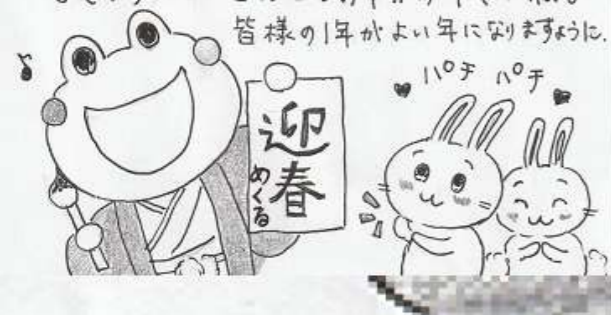 皆様の1年がよい年になりますように。
パチ パチ
迎春
めくる